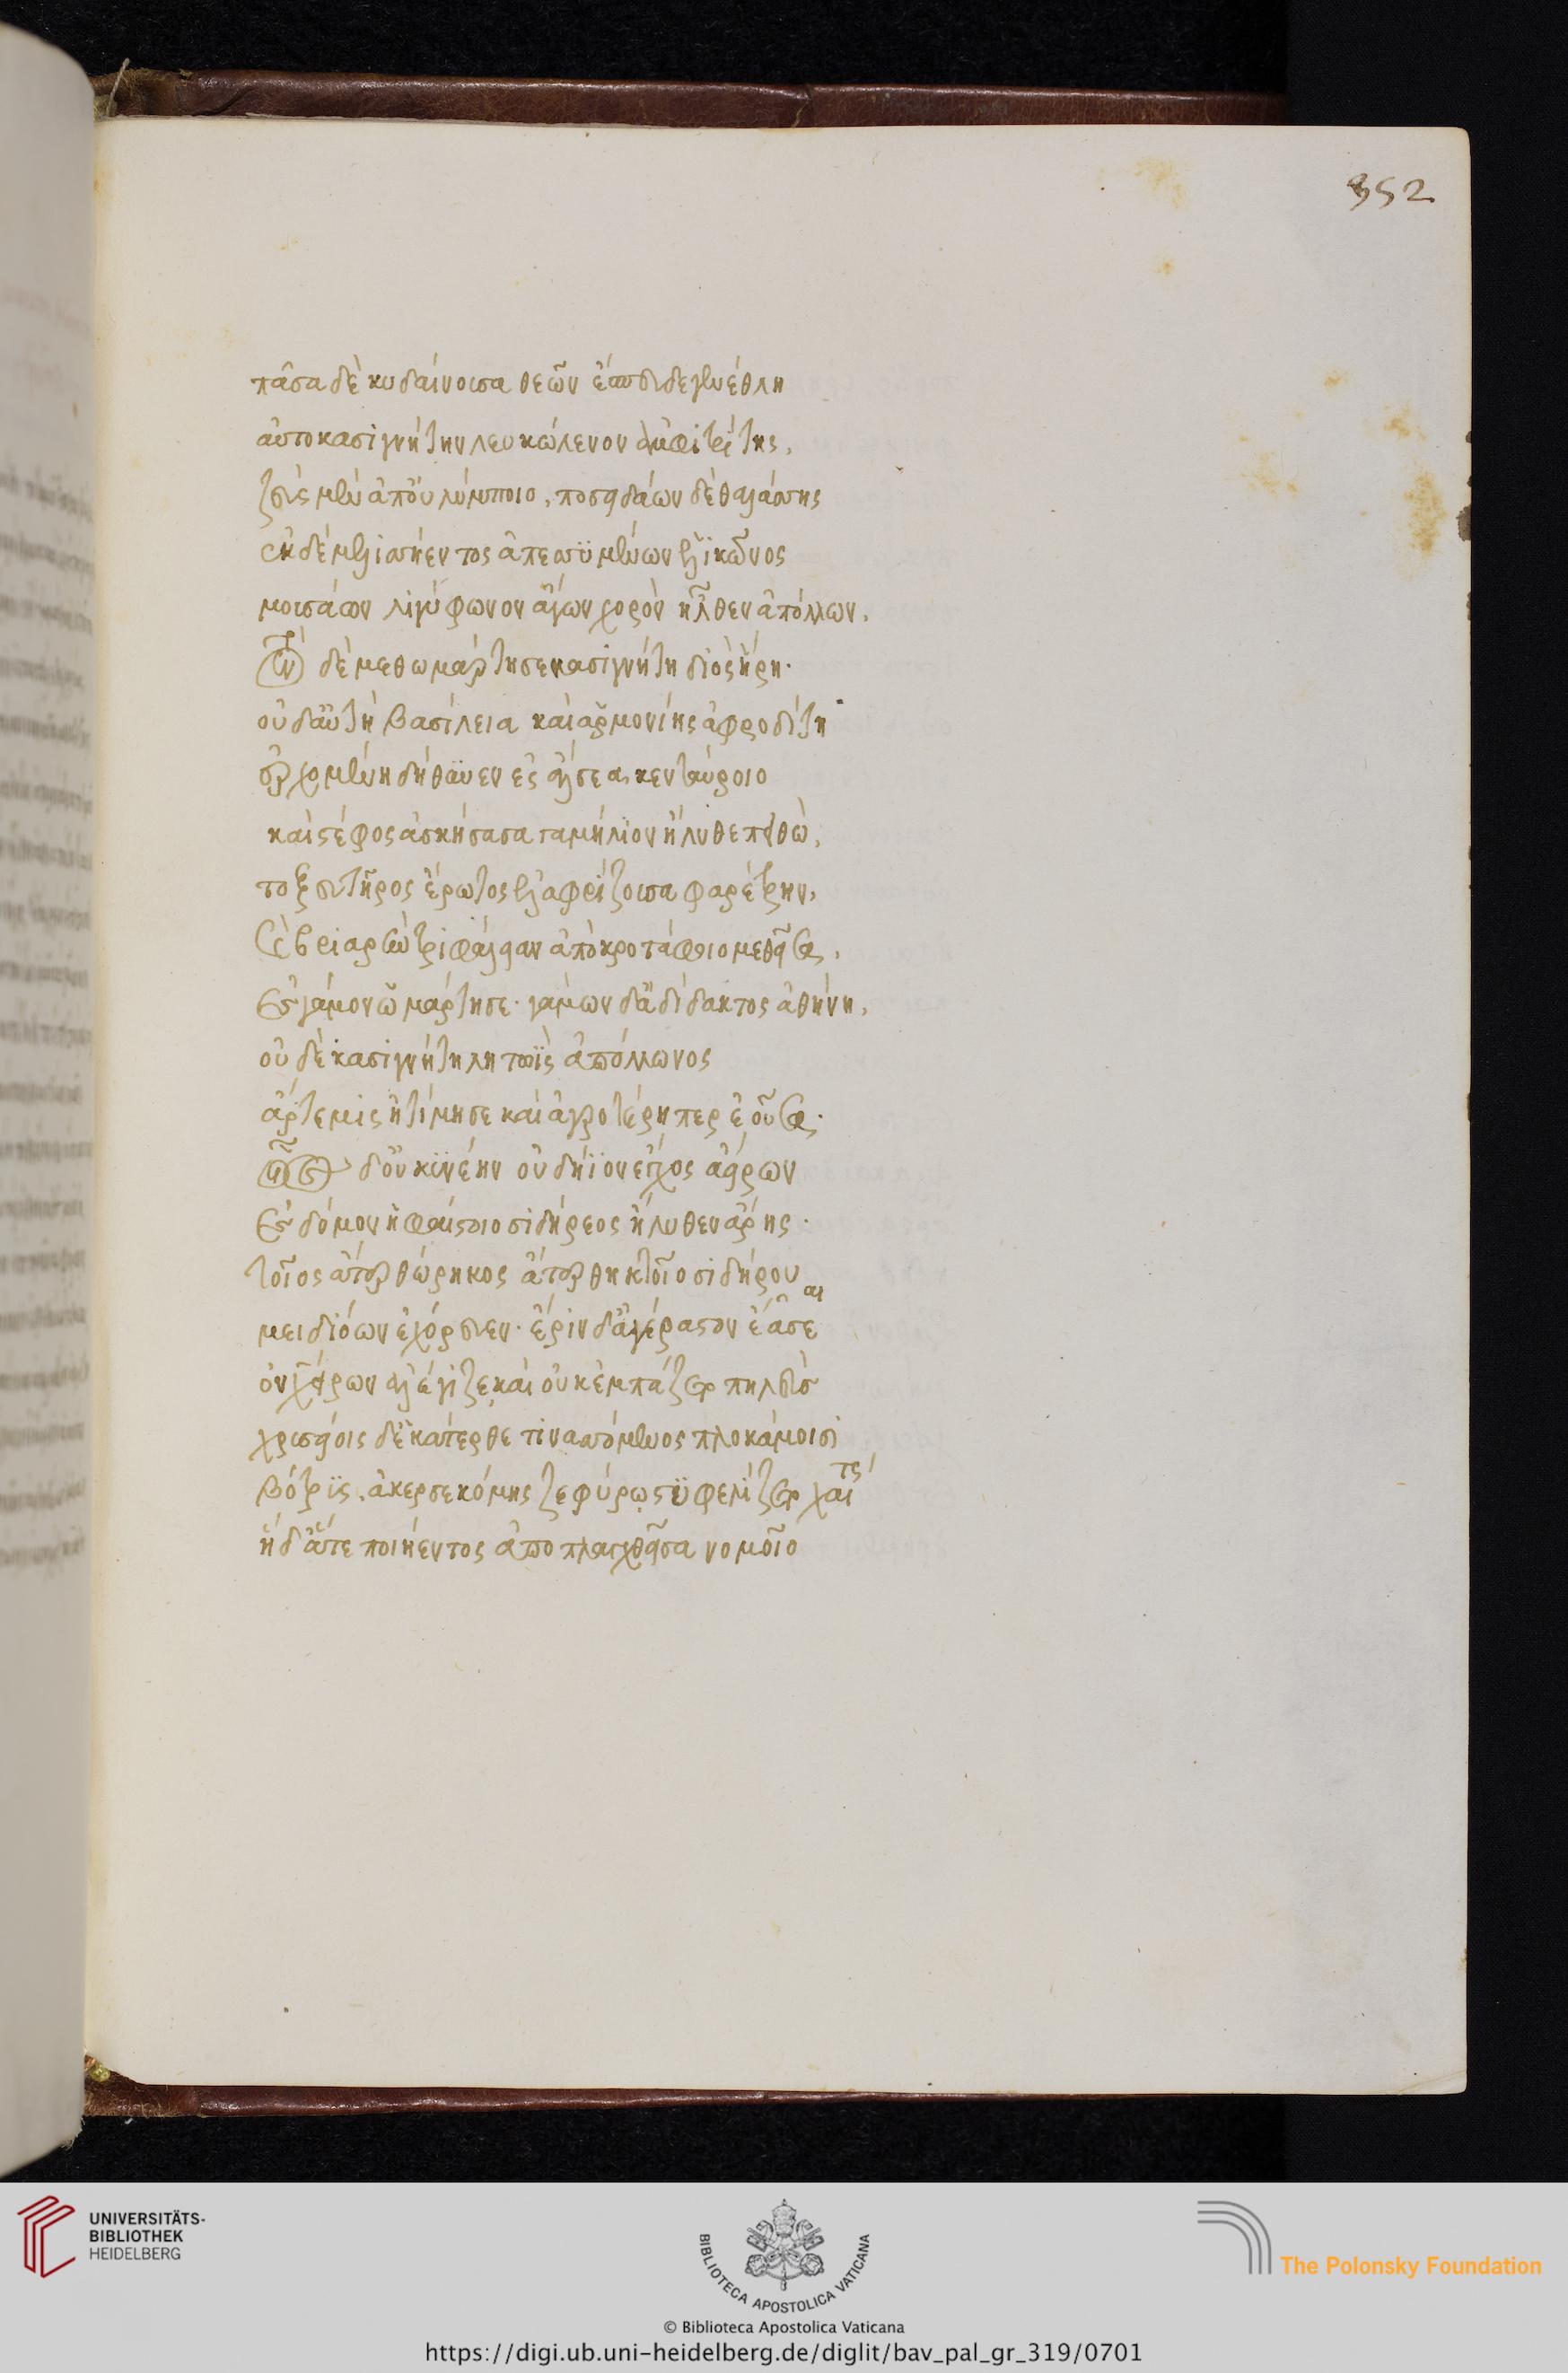 πᾶσα δὲ κυδαίνουσα θεῶν ἔσπευδε γενέθλη
αὐτοκασιγνήτην λευκώλενον ἀμφιτρίτης,
ζεὺς μὲν ἀπ' οὐλύμποιο, ποσειδάων δὲ θαλάσσης
ἐκ δὲ μελισσήεντος ἑλικῶνος
μουσάων λιγύφωνον ἄγων χορὸν ἦλθεν ἀπόλλων.
τὸν δὲ μεθωμάρτησε κασιγνήτη διὸς ἥρη·
οὐδ' αὐτὴ βασίλεια καὶ ἁρμονίης ἀφροδίτη
ἐρχομένη δήθϋνεν ἐς ἄλσεα κενταύροιο
καὶ στέφος ἀσκήσασα γαμήλϊον ἤλυθε πειθὼ,
τοξευτῆρος ἔρωτος ἐλαφρίζουσα φαρέτρην,
καὶ βριαρὴν τριφάλειαν ἀπὸ κροτάφοιο μεθεῖσα,
ἐς γάμον ὡμάρτησε· γάμων δ' ἀδίδακτος ἀθήνη,
οὐδὲ κασιγνήτη λητωϊς ἀπόλλωνος
ἄρτεμις ἠτίμησε καὶ ἀγροτέρη περ ἐοῦσα·
οἷος δ' οὐ κϋνέην οὐ δήϊον ἔγχος ἀείρων
ἐς δόμον ἡφαίστοιο σιδήρεος ἤλυθεν ἄρης·
τοῖος ἄτερ θώρηκος ἄτερ θηκτοῖο σιδήρου
μειδιόων ἐχόρευεν· ἔριν δ' ἀγέραστον ἐᾶσε αι
ὃν χείρων ἀλέγιζε, καὶ οὐκ ἐμπάζετο πηλεὺς
χρυσείοις δ' ἑκάτερθε τινασσόμενος πλοκάμοισι
βότρϋς, ἀκερσεκόμης ζεφύρῳ στϋφελίζετο χαίτης
ἡ δ' ἅτε ποιήεντος ἀποπλαγχθεῖσα νομοῖο
352
UNIVERSITÄTS-
BIBLIOTHEK
HEIDELBERG
BIBLIOTECA APOSTOLICA VATICANA
The Polonsky Foundation
© Biblioteca Apostolica Vaticana
https://digi.ub.uni-heidelberg.de/diglit/bav_pal_gr_319/0701